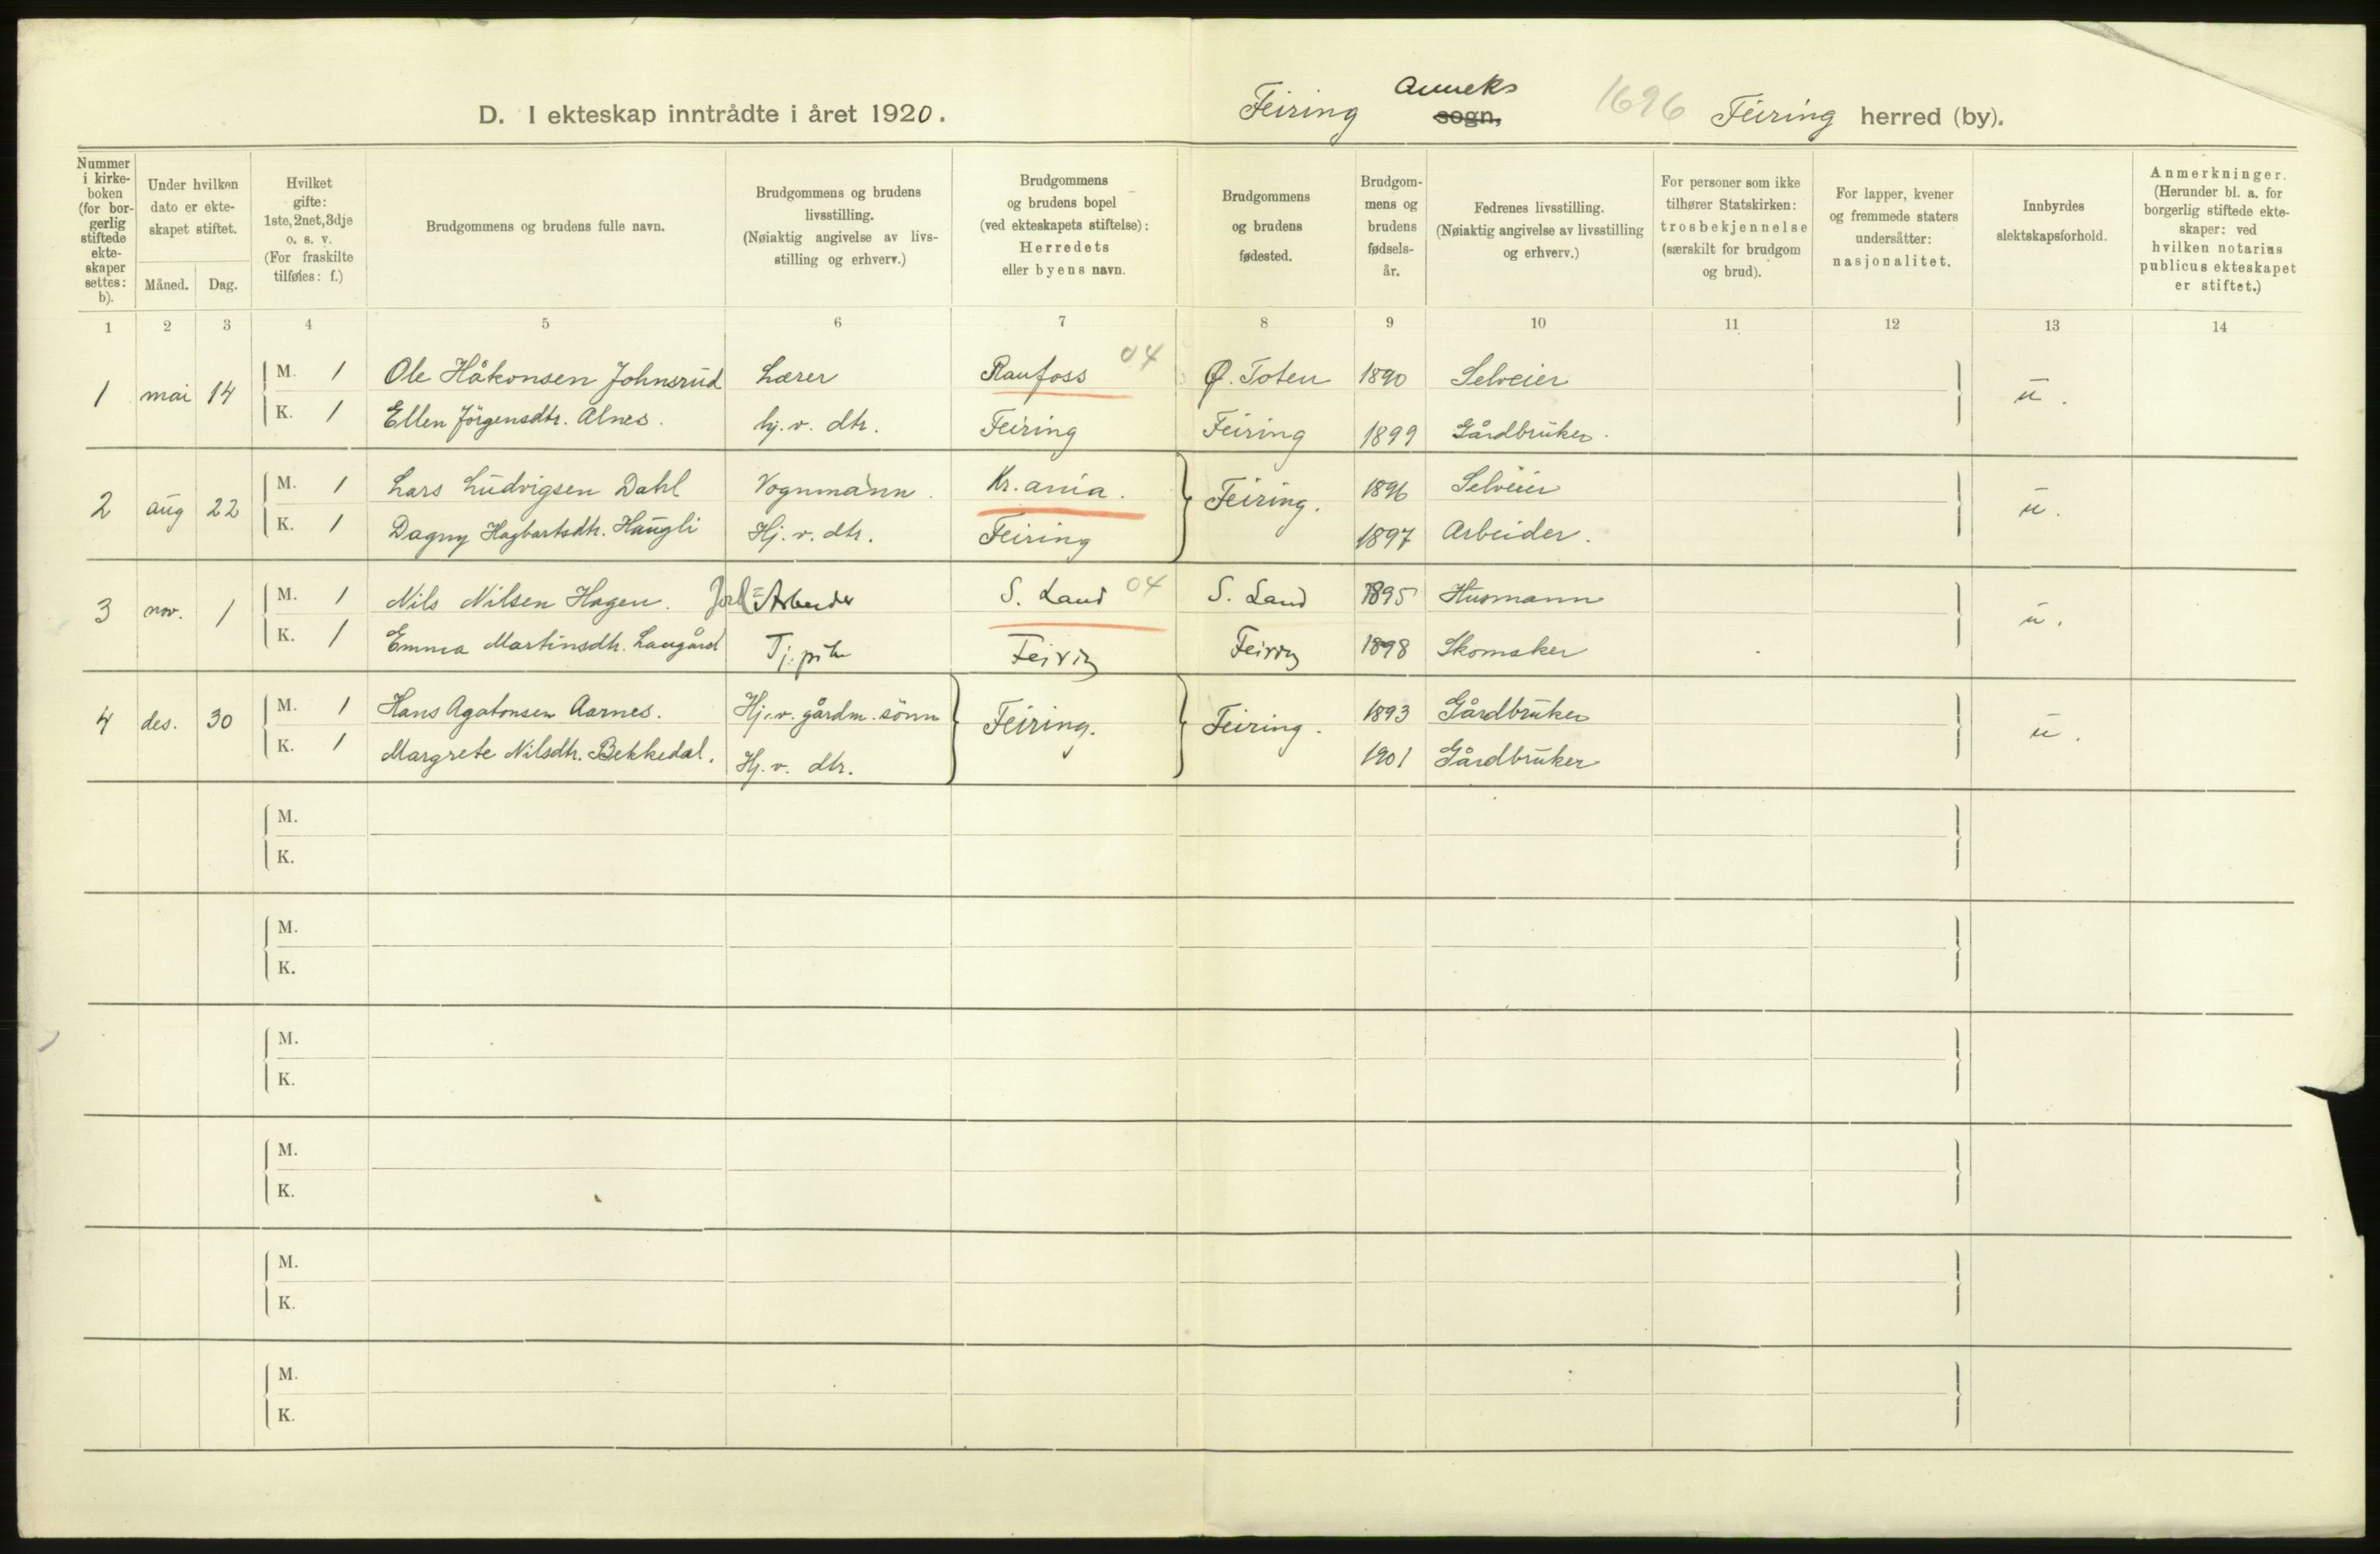 D. I ekteskap inntrådte i året 1920.
Feiring Anneks sogn, 1696 Feiring herred (by).
Nummer i kirke-boken (for bor-gerlig stiftede ekte-skaper settes: b).
Under hvilken dato er ekte-skapet stiftet.
Måned. Dag.
Hvilket gifte: 1ste, 2net, 3dje o. s. v. (For fraskilte tilføies: f.)
Brudgommens og brudens fulle navn.
Brudgommens og brudens livsstilling. (Nøiaktig angivelse av livs-stilling og erhverv.)
Brudgommens og brudens bopel (ved ekteskapets stiftelse): Herredets eller byens navn.
Brudgommens og brudens fødested.
Brudgom-mens og brudens fødsels-år.
Fedrenes livsstilling. (Nøiaktig angivelse av livsstilling og erhverv.)
For personer som ikke tilhører Statskirken: trosbekjennelse (særskilt for brudgom og brud).
For lapper, kvener og fremmede staters undersåtter: nasjonalitet.
Innbyrdes slektskapsforhold.
Anmerkninger. (Herunder bl. a. for borgerlig stiftede ekte-skaper: ved hvilken notarius publicus ekteskapet er stiftet.)
1 2 3 4 5 6 7 8 9 10 11 12 13 14
1 mai 14 M. 1 Ole Håkonsen Johnsrud Lærer Raufoss 04 Ø. Toten 1890 Selveier u.
K. 1 Ellen Jörgensdtr. Alnes. hj. v. dtr. Feiring Feiring 1899 Gårdbruker.
2 aug 22 M. 1 Lars Ludvigsen Dahl Vognmann. Kr.ania. Feiring. 1896 Selveier u.
K. 1 Dagny Hagbartsdtr. Haugli Hj. v. dtr. Feiring 1897 Arbeider.
3 nov. 1 M. 1 Nils Nilsen Hagen. Jord= Arbeider S. Land 04 S. Land 1895 Husmann u.
K. 1 Emma Martinsdtr. Laugård Tj. pike Feiring Feiring 1898 Skomaker
4 des. 30 M. 1 Hans Agatonsen Aarnes. Hj. v. gårdm. sönn Feiring. Feiring. 1893 Gårdbruker u.
K. 1 Margrete Nilsdtr. Bekkedal. Hj. v. dtr. 1901 Gårdbruker
M.
K.
M.
K.
M.
K.
M.
K.
M.
K.
M.
K.